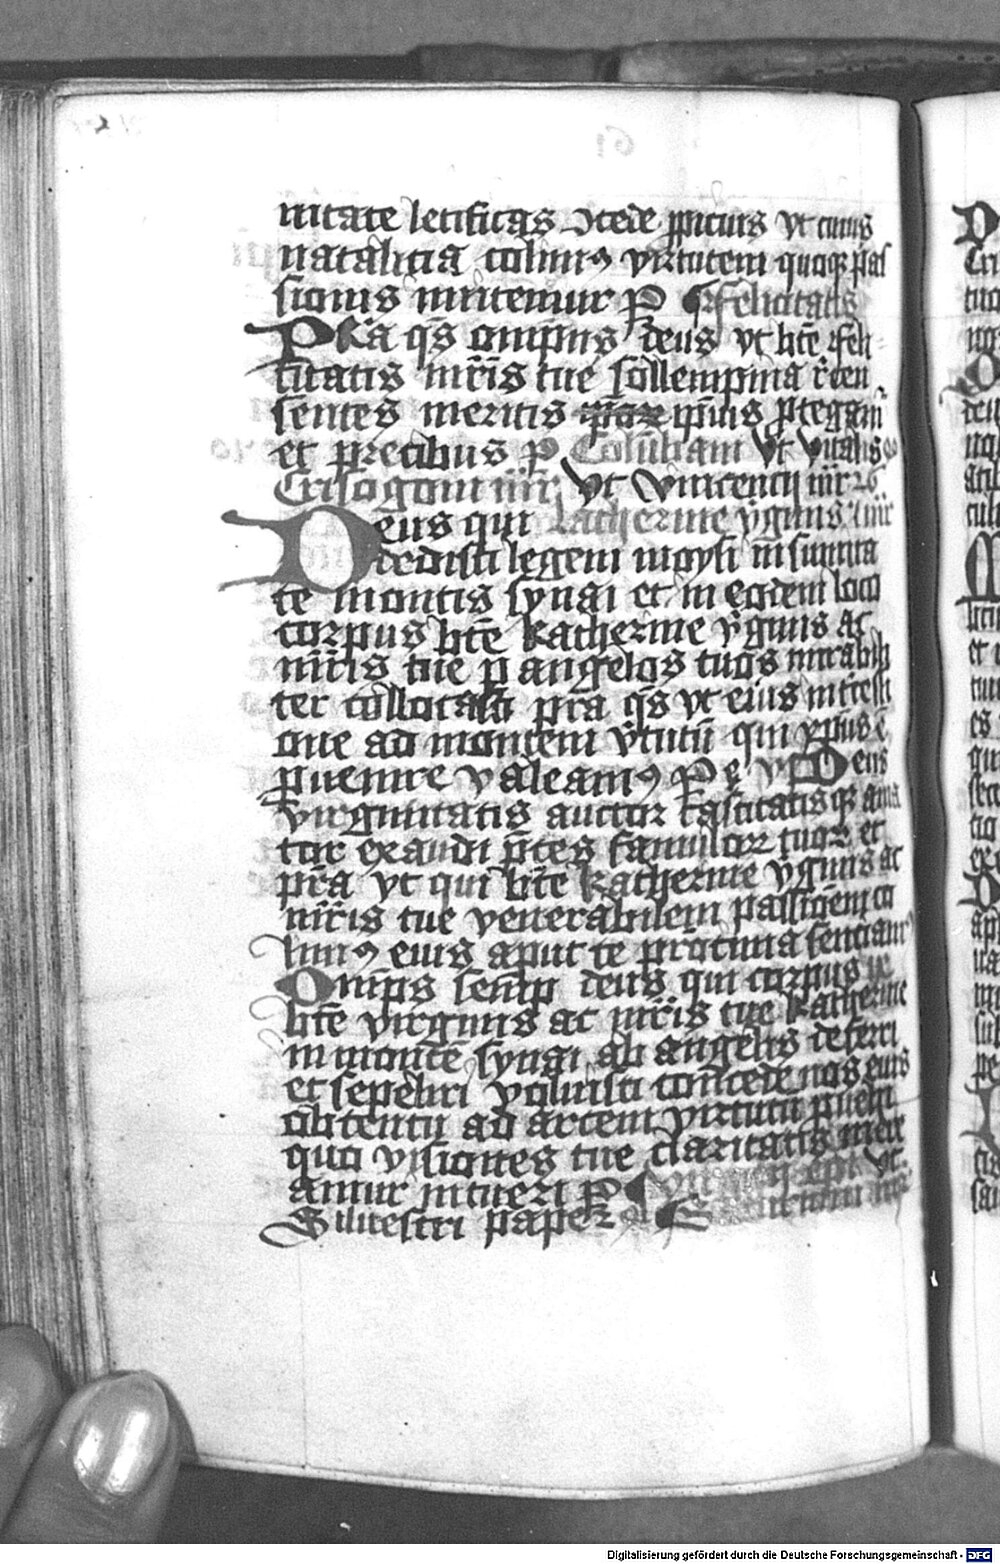 nitate letificas ꝯcede ꝓpicius vt cuius
natalicia colimꝰ virtutem quoqꝫ pas
sionis imitemur P Felicitatis
Pr̄a q̄s omīpns deus vt bt̄e feli
citatis mr̄is tue sollempnia r̄cen
sentes meritis ip̄ius ꝓtegam̄
et precibus P Columbani Vt vitalis
Crisogoni mr̄ Vt Vincencij mr̄
Deus qui katherine v̄ginis mr̄
dedisti legem moysi in sum̄ita
te montis synai et in eodem loco
corpus bt̄e katherine v̄ginis ac
mr̄is tue ꝑ angelos tuos mirabili
ter collocasti pr̄a q̄s vt eius int̄cessi
one ad montem v̄tutū qui xp̄us ē
ꝑuenire valeamꝰ P e Deus
virginitatis auctor castitatisqꝫ ama
tor exaudi p̄ces famuloꝝ tuoꝝ et
pr̄a vt qui bt̄e katherine v̄ginis ac
mr̄is tue venerabilem passioēm co
limꝰ eius aput te ꝓtinia senciamꝰ
Omīps semp deus qui corpus
bt̄e virginis ac mr̄is tue katherine
in monte synai ab angelis deferri
et sepeliri voluisti concede nos eius
obtentu ad arcem virtutū ꝑuehi
quo visiones tue claritatis mere
amur intueri P Vt
Siluestri pape
61
Digitalisierung gefördert durch die Deutsche Forschungsgemeinschaft - DFG